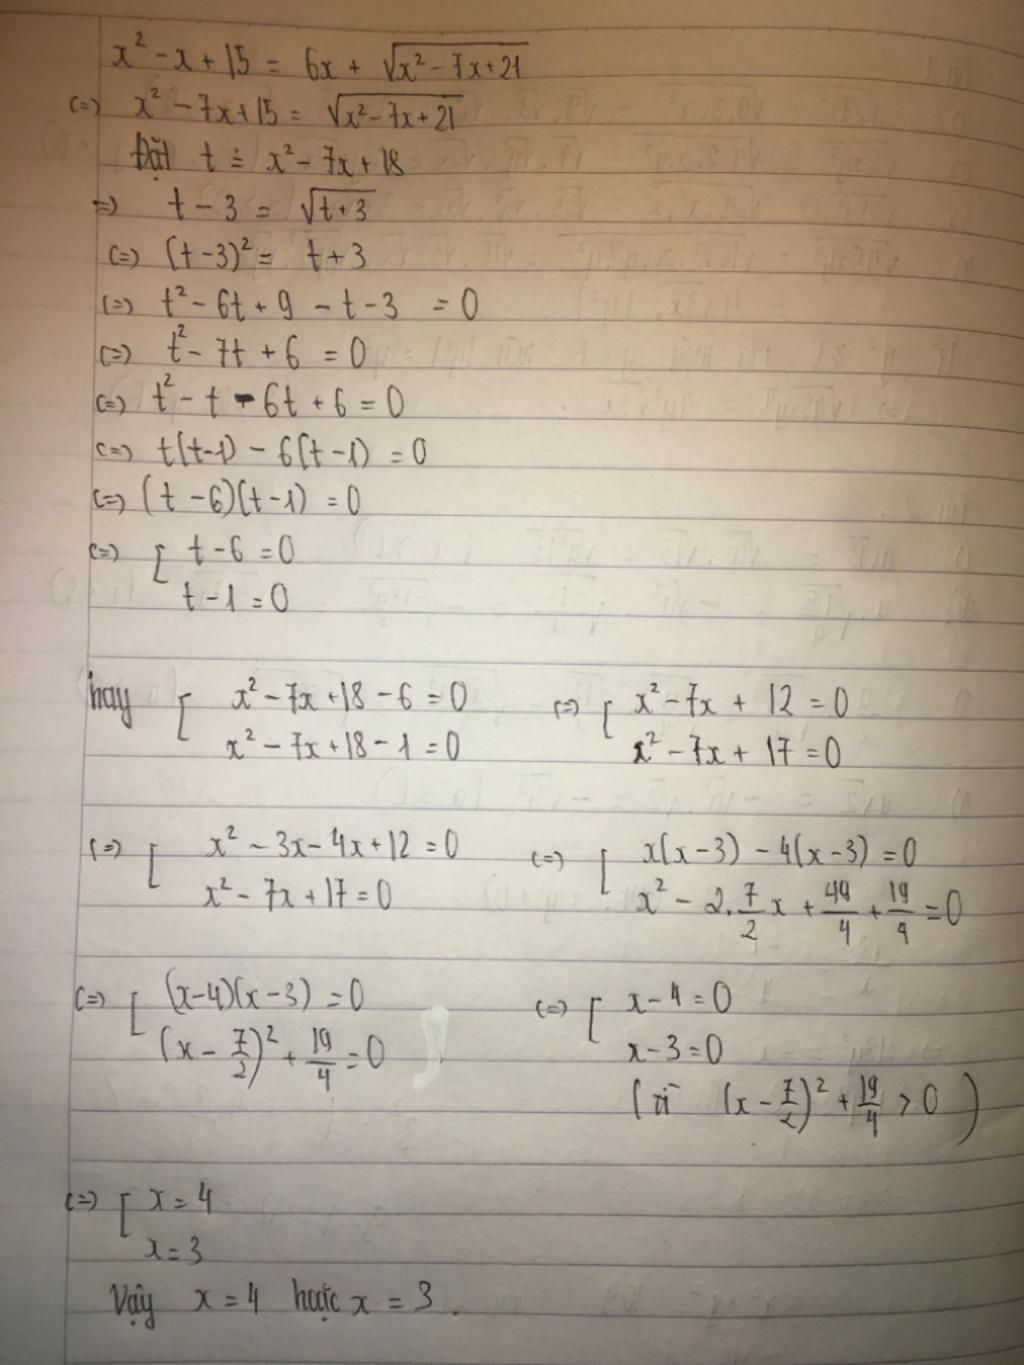 x² - x + 15 = 6x + √(x² - 7x + 21)
(=) x² - 7x + 15 = √(x² - 7x + 21)
Đặt t = x² - 7x + 18
=) t - 3 = √(t + 3)
(=) (t - 3)² = t + 3
(=) t² - 6t + 9 - t - 3 = 0
(=) t² - 7t + 6 = 0
(=) t² - t - 6t + 6 = 0
(=) t(t-1) - 6(t - 1) = 0
(=) (t - 6)(t - 1) = 0
(=) [ t - 6 = 0
t - 1 = 0
hay [ x² - 7x + 18 - 6 = 0 (=) [ x² - 7x + 12 = 0
x² - 7x + 18 - 1 = 0 x² - 7x + 17 = 0
(=) [ x² - 3x - 4x + 12 = 0 (=) [ x(x - 3) - 4(x - 3) = 0
x² - 7x + 17 = 0 x² - 2.7/2x + 49/4 + 19/4 = 0
(=) [ (x-4)(x-3) = 0 (=) [ x - 4 = 0
(x - 7/2)² + 19/4 = 0 x - 3 = 0
(vì (x - 7/2)² + 19/4 > 0)
(=) [ x = 4
x = 3
Vậy x = 4 hoặc x = 3.